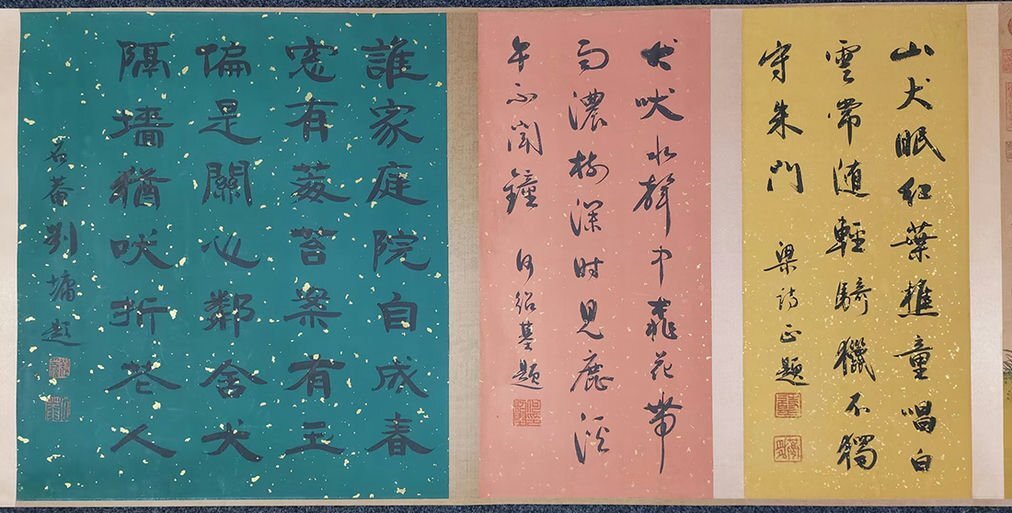 山犬眠红葉樵童唱白
雲常随輕騎獵不獨
守朱門 梁诗正题
犬吠水聲中桃花带
雨濃樹深时見鹿溪
午不闻鐘 何绍基題
誰家庭院自成春
窓有莓苔案有
偏是關心鄰舍犬
隔墻猶吠折花人
石菴劉墉題